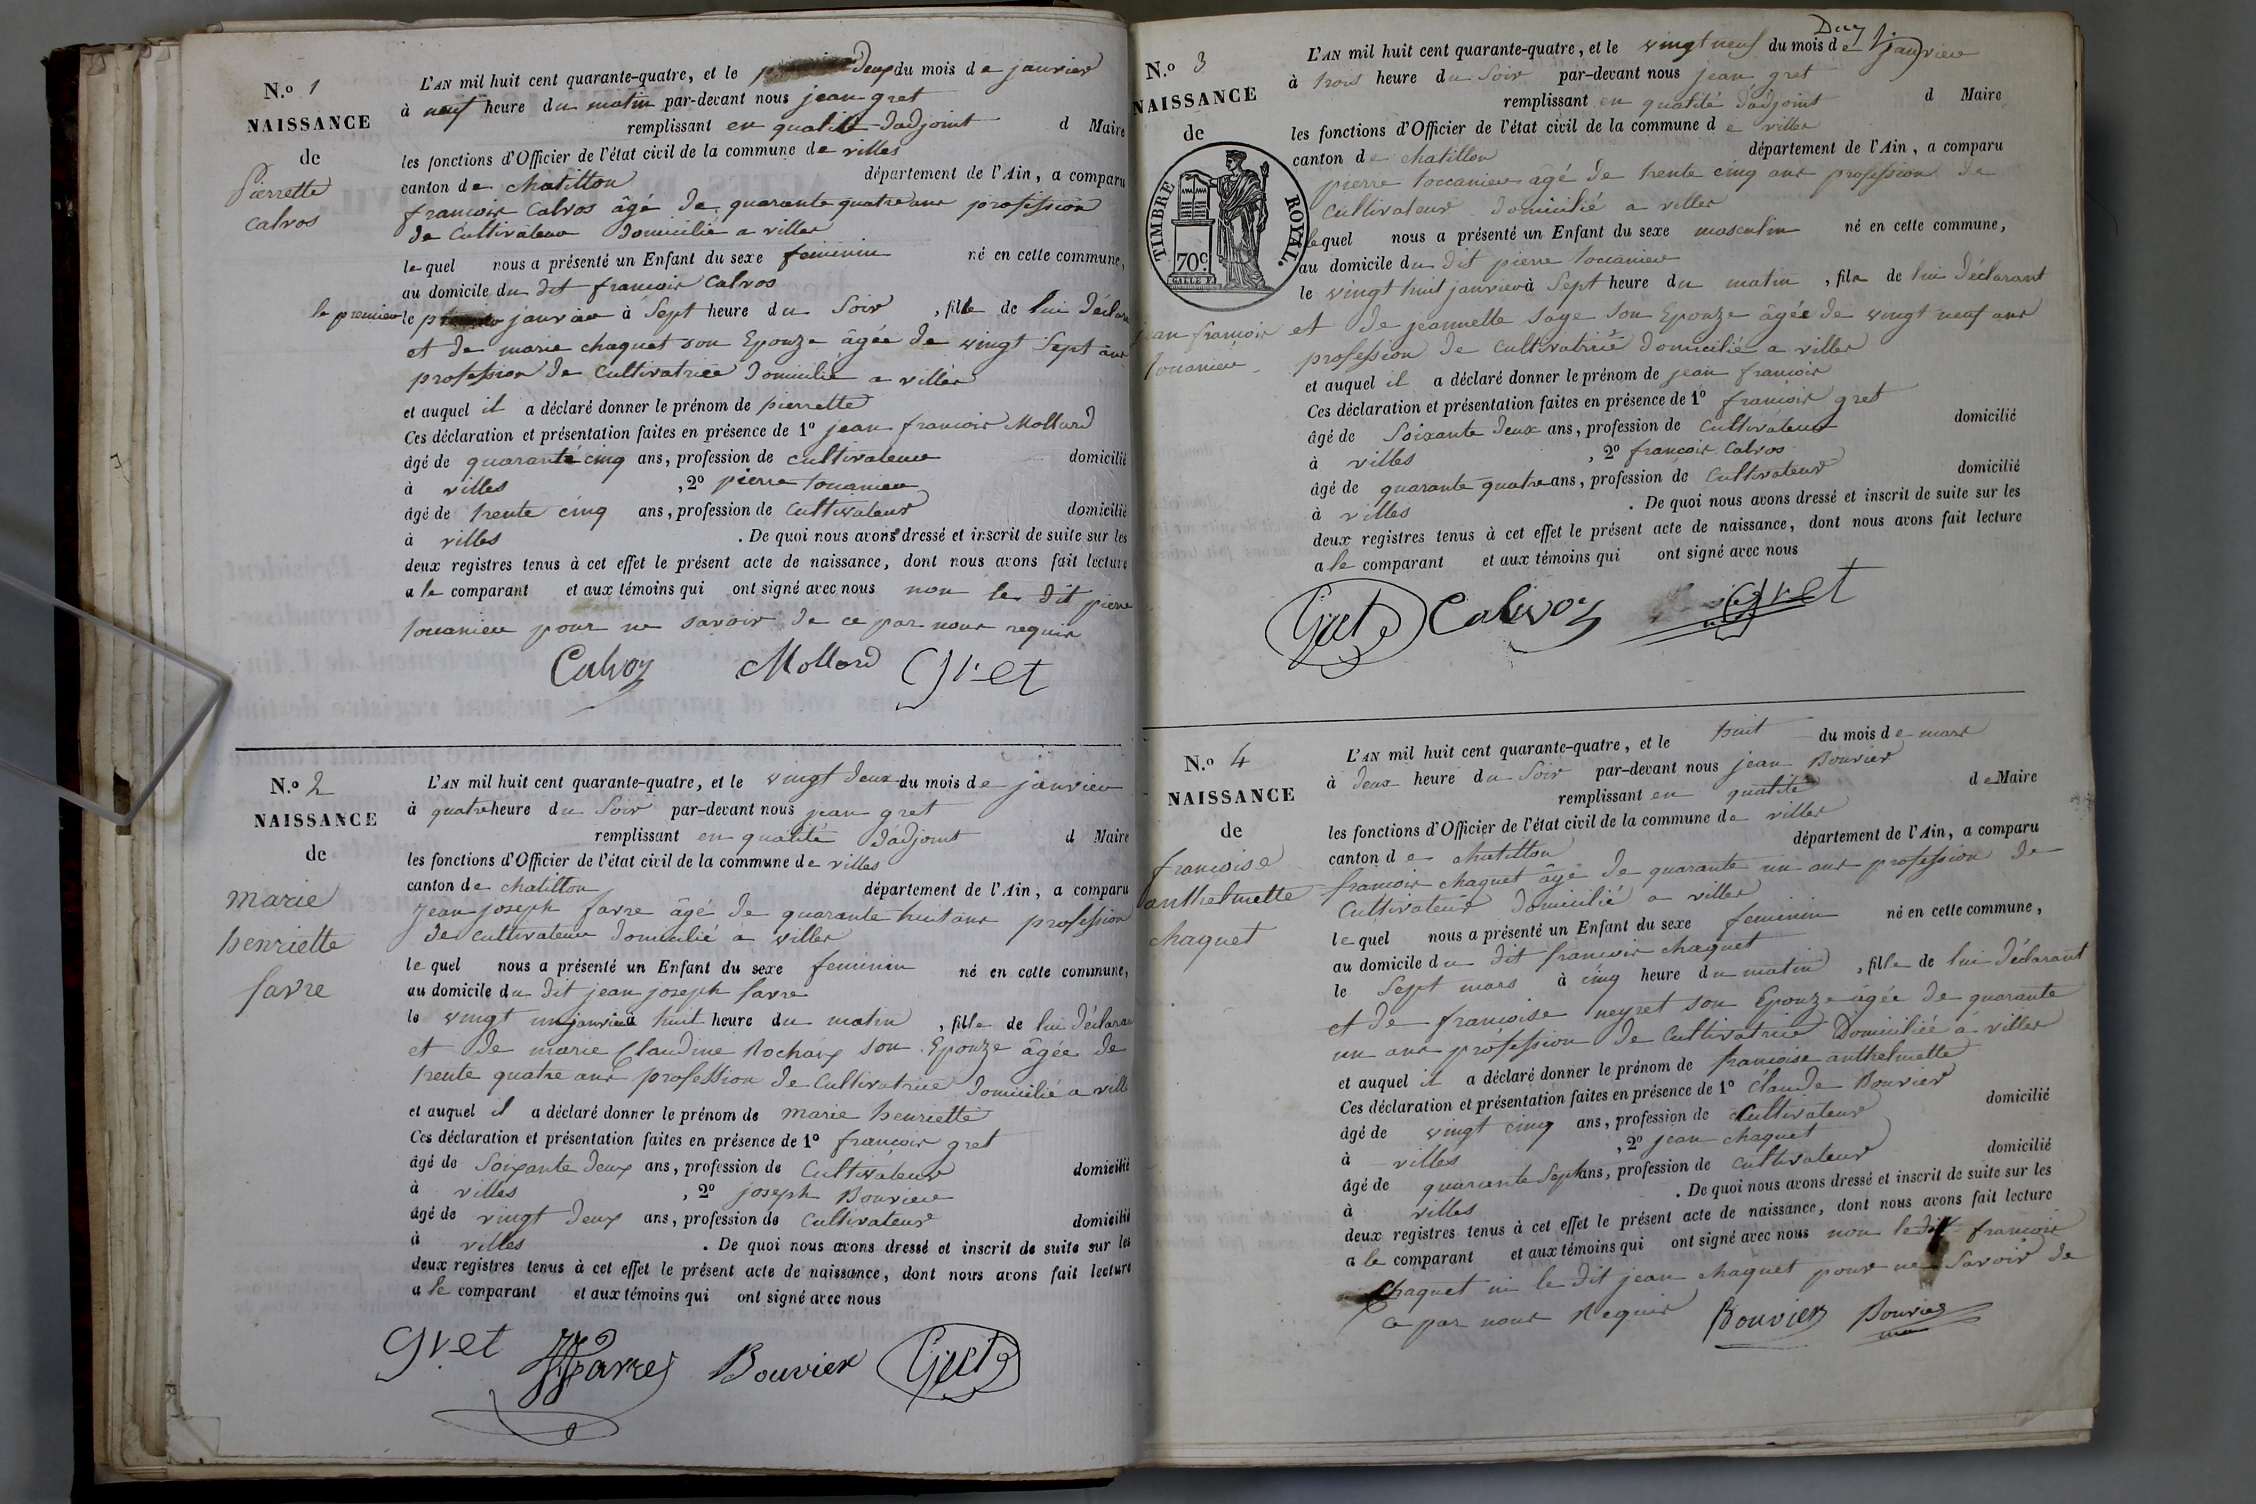 N.o 1
NAISSANCE
de
Pierrette
calvos
L'AN mil huit cent quarante-quatre, et le deux du mois de janvier
à neuf heure du matin par-devant nous jean gret
remplissant en qualité d'adjoint d Maire
les fonctions d'Officier de l'état civil de la commune de villes
canton de chatillon département de l'Ain, a comparu
francois Calvos âgé de quarante quatre ans profession
de Cultivateur domicilié a villes
le quel nous a présenté un Enfant du sexe feminin né en cette commune,
au domicile du dit francois Calvos
le premier le janvier à Sept heure du Soir, fille de lui déclara
et de marie chaquet son Epouze âgée de vingt Sept ans
profession de Cultivatrice domicilié a villes
et auquel il a déclaré donner le prénom de pierrette
Ces déclaration et présentation faites en présence de 1o jean francois Mollard
âgé de quarante cinq ans, profession de cultivateur domicilié
à villes, 2o pierre touanieu
âgé de trente cinq ans, profession de Cultivateur domicilié
à villes. De quoi nous avons dressé et inscrit de suite sur les
deux registres tenus à cet effet le présent acte de naissance, dont nous avons fait lecture
a le comparant et aux témoins qui ont signé avec nous non le dit pierre
touanieu pour ne savoir de ce par nous requis
Calvoz Mollard Gret
N.o 2
NAISSANCE
de
marie
henriette
favre
L'AN mil huit cent quarante-quatre, et le vingt deux du mois de janvier
à quatre heure du Soir par-devant nous jean gret
remplissant en qualité d'adjoint d Maire
les fonctions d'Officier de l'état civil de la commune de villes
canton de chatillon département de l'Ain, a comparu
jean joseph favre âgé de quarante huit ans profession
de cultivateur domicilié a villes
le quel nous a présenté un Enfant du sexe feminin né en cette commune,
au domicile du dit jean joseph favre
le vingt un janvier à huit heure du matin, fille de lui déclaran
et de marie Claudine Rochaix son Epouze âgée de
trente quatre ans profession de Cultivatrice domicilié a ville
et auquel il a déclaré donner le prénom de marie henriette
Ces déclaration et présentation faites en présence de 1o francois gret
âgé de Soixante deux ans, profession de Cultivateur domicilié
à villes, 2o joseph Bouvier
âgé de vingt deux ans, profession de Cultivateur domicilié
à villes. De quoi nous avons dressé et inscrit de suite sur les
deux registres tenus à cet effet le présent acte de naissance, dont nous avons fait lecture
a le comparant et aux témoins qui ont signé avec nous
Gret JJfavre Bouvier Gret
N.o 3
NAISSANCE
de
TIMBRE ROYAL.
70c
jean francois
touanieu
L'AN mil huit cent quarante-quatre, et le vingt neuf du mois de janvier
à trois heure du Soir par-devant nous jean gret
remplissant en qualité d'adjoint d Maire
les fonctions d'Officier de l'état civil de la commune de villes
canton de chatillon département de l'Ain, a comparu
pierre touanieu âgé de trente cinq ans profession de
Cultivateur domicilié a villes
lequel nous a présenté un Enfant du sexe masculin né en cette commune,
au domicile du dit pierre touanieu
le vingt huit janvier à Sept heure du matin, fils de lui déclarant
et de jeannette Sage son Epouze âgée de vingt neuf ans
profession de cultivatrice domicilié a villes
et auquel il a déclaré donner le prénom de jean francois
Ces déclaration et présentation faites en présence de 1o francois gret
âgé de Soixante deux ans, profession de Cultivateur domicilié
à villes, 2o francois Calvos
âgé de quarante quatre ans, profession de Cultivateur domicilié
à villes. De quoi nous avons dressé et inscrit de suite sur les
deux registres tenus à cet effet le présent acte de naissance, dont nous avons fait lecture
a le comparant et aux témoins qui ont signé avec nous
Gret Calvoz Gret
N.o 4
NAISSANCE
de
francoise
anthelmette
chaquet
L'AN mil huit cent quarante-quatre, et le huit du mois de mars
à deux heure du Soir par-devant nous jean Bouvier
remplissant en qualité de Maire
les fonctions d'Officier de l'état civil de la commune de villes
canton de chatillon département de l'Ain, a comparu
francois chaquet âgé de quarante un ans profession de
Cultivateur domicilié a villes
le quel nous a présenté un Enfant du sexe feminin né en cette commune,
au domicile du dit francois chaquet
le Sept mars à cinq heure du matin, fille de lui déclarant
et de francoise neyret son Epouze âgée de quarante
un ans profession de Cultivatrice Domiciliée a villes
et auquel il a déclaré donner le prénom de francoise anthelmette
Ces déclaration et présentation faites en présence de 1o Claude Bouvier
âgé de vingt cinq ans, profession de Cultivateur domicilié
à villes, 2o jean chaquet
âgé de quarante Sept ans, profession de Cultivateur domicilié
à villes. De quoi nous avons dressé et inscrit de suite sur les
deux registres tenus à cet effet le présent acte de naissance, dont nous avons fait lecture
a le comparant et aux témoins qui ont signé avec nous non le dit francois
Chaquet ni le dit jean chaquet pour ne Savoir de
ce par nous Requis Bouvier Bouvier